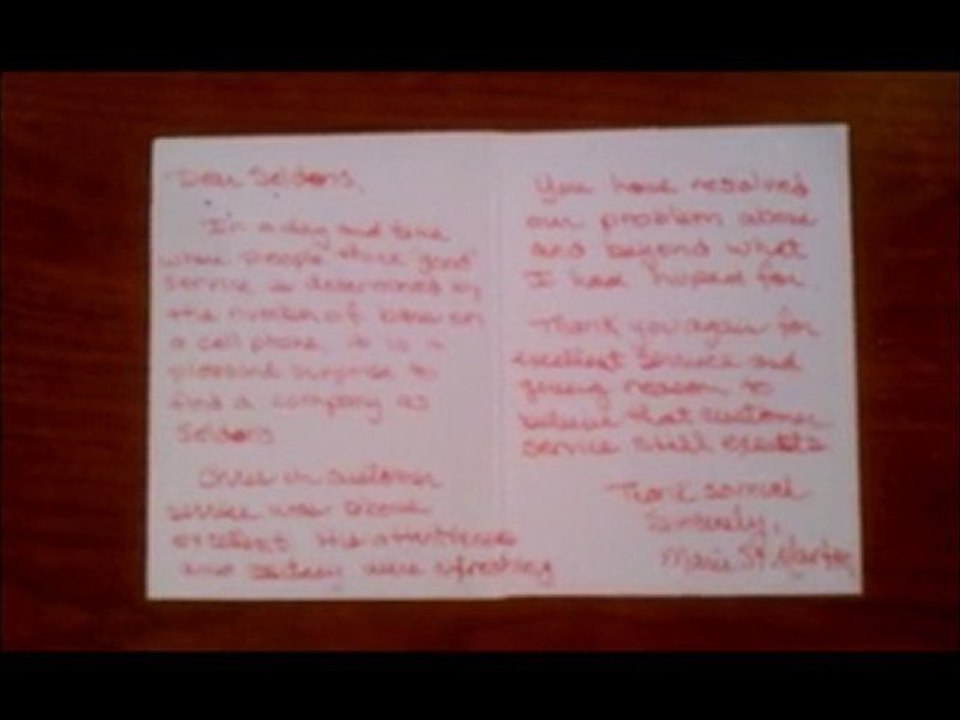 Dear Seldens,
In a day and time
where people think good
service is determined by
the number of bars on
a cell phone, it is a
pleasant surprise to
find a company as
Seldens
in customer
service was
excellent. His attentiveness
and were refreshing
You have resolved
our problem above
and beyond what
I had hoped for.
Thank you again for
excellent service and
giving reason to
believe that customer
service still exists
Thank
Sincerely,
Marie St.